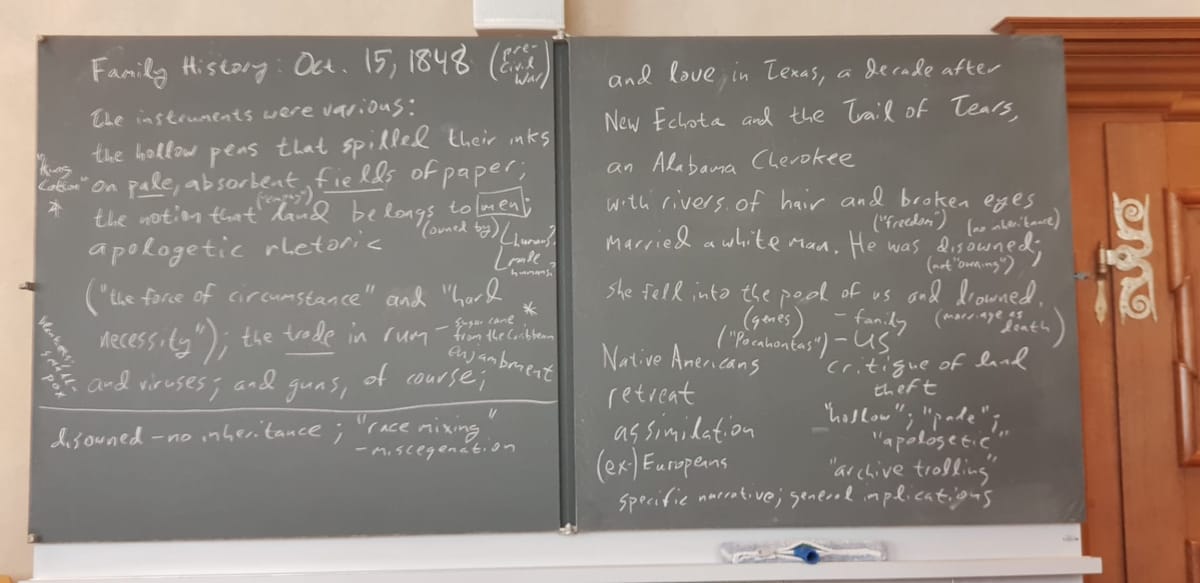 Family History: Oct. 15, 1848 (pre-Civil War)
The instruments were various:
the hollow pens that spilled their inks
"King Cotton" *
on pale, absorbent fields of paper;
("empty")
the notion that land belongs to men;
(owned by)
humans?
male humans?
apologetic rhetoric
("the force of circumstance" and "hard
necessity"); the trade in rum – sugar cane from the Caribbean
*
enjambment
smallpox
and viruses; and guns, of course;
disowned – no inheritance; "race mixing"
– miscegenation
and love, in Texas, a decade after
New Echota and the Trail of Tears,
an Alabama Cherokee
with rivers of hair and broken eyes
("freedom") (no inheritance)
married a white man. He was disowned;
(not "owning")
she fell into the pool of us and drowned.
(genes) – family (marriage as death)
("Pocahontas") – US
Native Americans
retreat
assimilation
(ex-)Europeans
critique of land theft
"hollow"; "pale";
"apologetic"
"archive trolling"
specific narrative; general implications